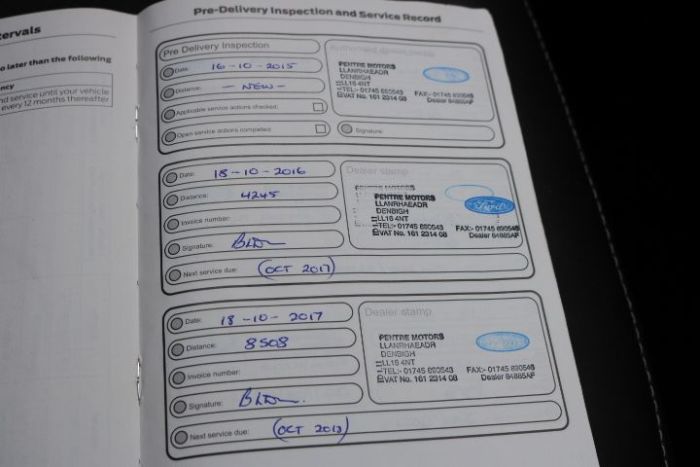 ervals
o later than the following
ncy
nd service until your vehicle
every 12 months thereafter
Pre-Delivery Inspection and Service Record
Pre Delivery Inspection
Date: 16-10-2015
Distance: - NEW -
Applicable service actions checked:
Open service actions completed:
PENTRE MOTORS
LLANRHAEADR
DENBIGH
LL16 4NT
TEL:- 01745 890543 FAX:- 01745
VAT No. 161 2314 08 Dealer 84885AP
Signature:
Date: 18-10-2016
Distance: 4245
Invoice number:
Signature:
Next service due: (OCT 2017)
Dealer stamp
PENTRE MOTORS
PENTRE MOTORS
LLANRHAEADR
DENBIGH
LL16 4NT
TEL:- 01745 890543 FAX:- 01745
VAT No. 161 2314 08 Dealer 84885AP
Ford
Date: 18-10-2017
Distance: 8508
Invoice number:
Signature:
Next service due: (OCT 2018)
Dealer stamp
PENTRE MOTORS
LLANRHAEADR
DENBIGH
LL16 4NT
TEL:- 01745 890543 FAX:- 01745
VAT No. 161 2314 08 Dealer 84885AP